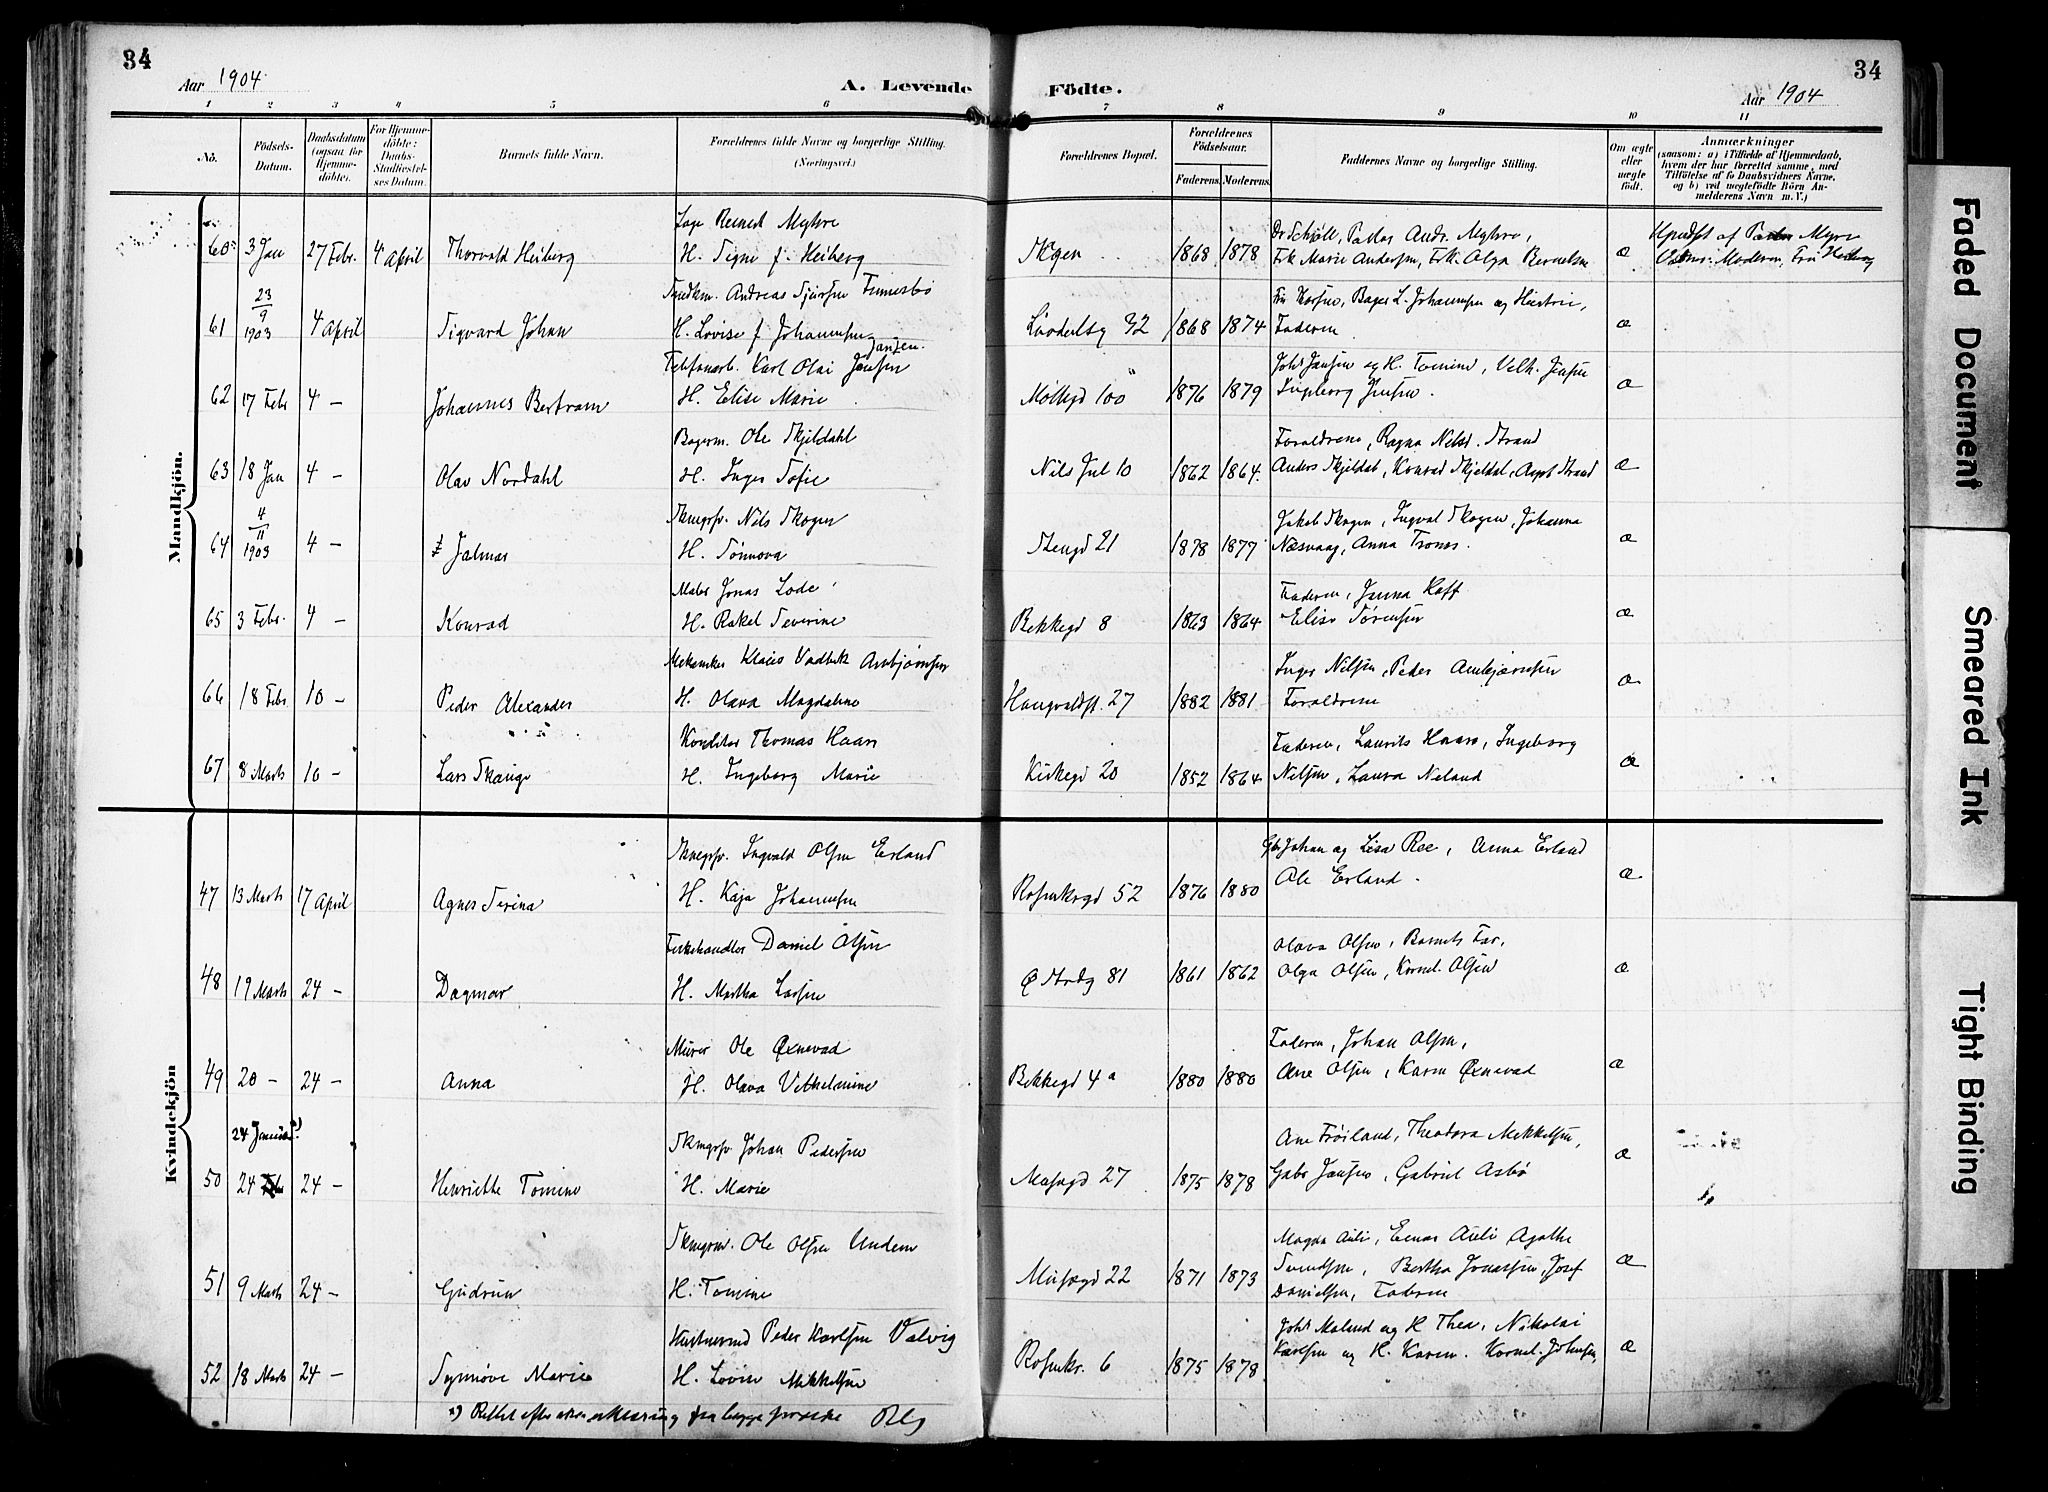 34
Aar 1904
A. Levende Födte.
34
Aar 1904
1 2 3 4 5 6 7 8 9 10 11
No.
Födsels-Datum.
Daabsdatum (ogsaa for Hjemmedöbte).
For Hjemmedöbte: Daabs-Stadfæstelses Datum.
Barnets fulde Navn.
Forældrenes fulde Navne og borgerlige Stilling. (Næringsvei.)
Forældrenes Bopæl.
Forældrenes Födselsaar.
Faderens. Moderens.
Faddernes Navne og borgerlige Stilling.
Om ægte eller uægte födt.
Anmærkninger
(saasom: a) i Tilfælde af Hjemmedaab, hvem der har forrettet samme, med Tilföielse af to Daabsvidners Navne, og b) ved uægtefödte Börn Anmelderens Navn m. V.)
Mandkjön.
60 3 Jan 27 Febr. 4 April Thorvald Heiberg
Reinert Myhre
H. Signe f. Heiberg
1868 1878
Pastor Andr. Myhre,
Frk Marie Andersen, Frk. Olga Berentsen
æ
61 23/9 1903 4 April Sigvard Johan
Andreas Sjursen Finnesbø
H. Lovise f. Johannesen
32 1868 1874
Bager L. Johannesen og Hustru,
Faderen
æ
62 17 Febr 4 — Johannes Bertram
Telefonarb. Karl Olai Jansen
Jansen
H. Elise Marie
Møllegd 100 1876 1879
Johs Jansen og H. Tomine, Vilh. Jensen
Ingeborg Jensen.
æ
63 18 Jan 4 — Olav Nordahl
Bagerm. Ole Skjeldahl
H. Inger Sofie
Nils Jul 10 1862 1864.
Forældrene, Ragna Nils. Strand
Anders Skjeldal, Konrad Skjeldal, Strand
æ
64 4/11 1903 4 — Jalmar
Nils Skogen
H. Tønnova
Stengd 21 1878 1877
Jakob Skogen, Ingval Skogen, Johanna
Næsvaag, Anna Tronæs.
æ
65 3 Febr. 4 — Konrad
Maler Jonas Lode
H. Rakel Severine
Bekkegd 8 1863 1864
Faderen, Janna Hoff
Elise Sørensen
æ
66 18 Febr. 10 — Peder Alexander
Mekaniker Klaus Vadbek Arnbjørnsen
H. Olava Magdalene
Haugvaldst. 27 1882 1881
Inger Nilsen, Peder Arnbjørnsen
Forældrene
æ
67 8 Marts 10 — Lars Skauge
Konditor Thomas Haar
H. Ingeborg Marie
Kirkegd 20 1852 1864
Faderen, Laurits Haar, Ingeborg
Nilsen, Laura Neland
æ
Kvindekjön
47 13 Marts 17 April Agnes Serina
Ingvald Olsen Erland
H. Kaja Johannesen
Rosenkrgd 52 1876 1880
Johan og Lisa Ree, Anna Erland
Ole Erland.
æ
48 19 Marts 24 — Dagmar
Fiskehandler Daniel Olsen
H. Martha Larsen
Ø Strdg 81 1861 1862
Olava Olsen, Barnets Far,
Olga Olsen, Kornel. Olsen
æ
49 20 — 24 — Anna
Murer Ole Øxnevad
H. Olava Vilhelmine
Bekkegd 4a 1880 1880
Faderen, Johan Olsen,
Ane Olsen, Karen Øxnevad
æ
24 Januar x)
50 24 Feb 24 — Henriette Tomine
Johan Pedersen
H. Marie
27 1875 1878
Ane Frøiland, Theodora Mikkelsen,
Gabr Jansen, Gabriel Asbø
æ
51 9 Marts 24 — Gudrun
Ole Olsen Undem
H. Tomine
Musægd 22 1871 1873
Magda Auli, Einar Auli Agathe
Svendsen, Bertha Jonassen, Josef
Danielsen, Faderen
æ
52 18 Marts 24 — Synnøve Marie
Peder Karlsen Valvig
H. Lovise Mikkelsen
Rosenkr. 6 1875 1878
Johs Malund og H Thea, Nikolai
Karlsen og H. Karen. Kornel. Johnsen
æ
x) Rettet efter
Faded Document
Smeared Ink
Tight Binding